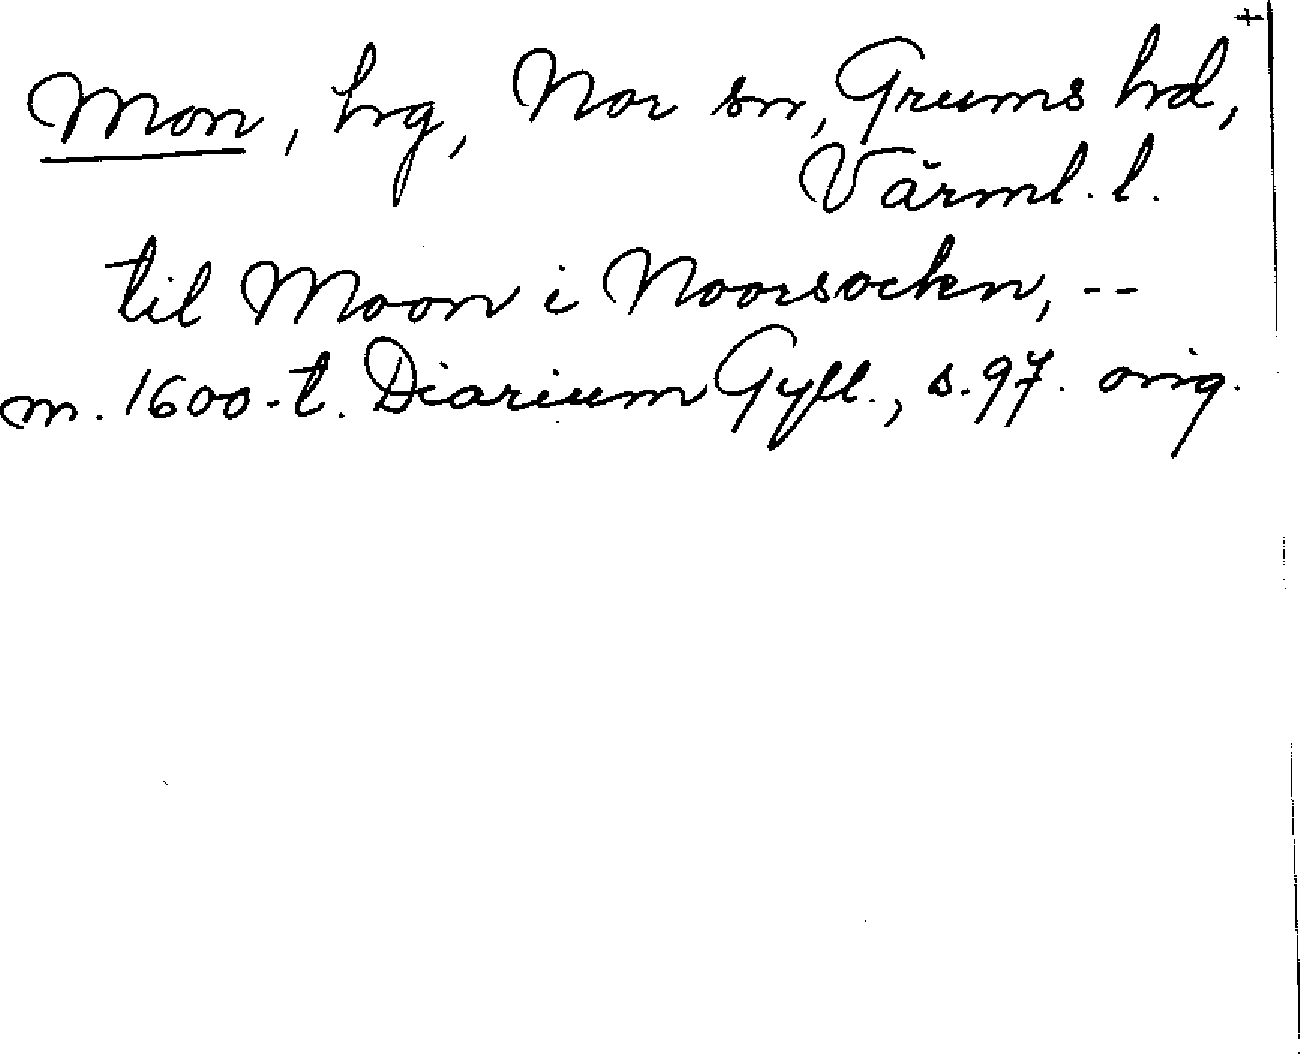 +
Mon, hrg, Nor sn, Grums hd,
Värml. l.
til Moon i Noorsockn, --
m. 1600-t. Diarium Gyll., s. 97. orig.